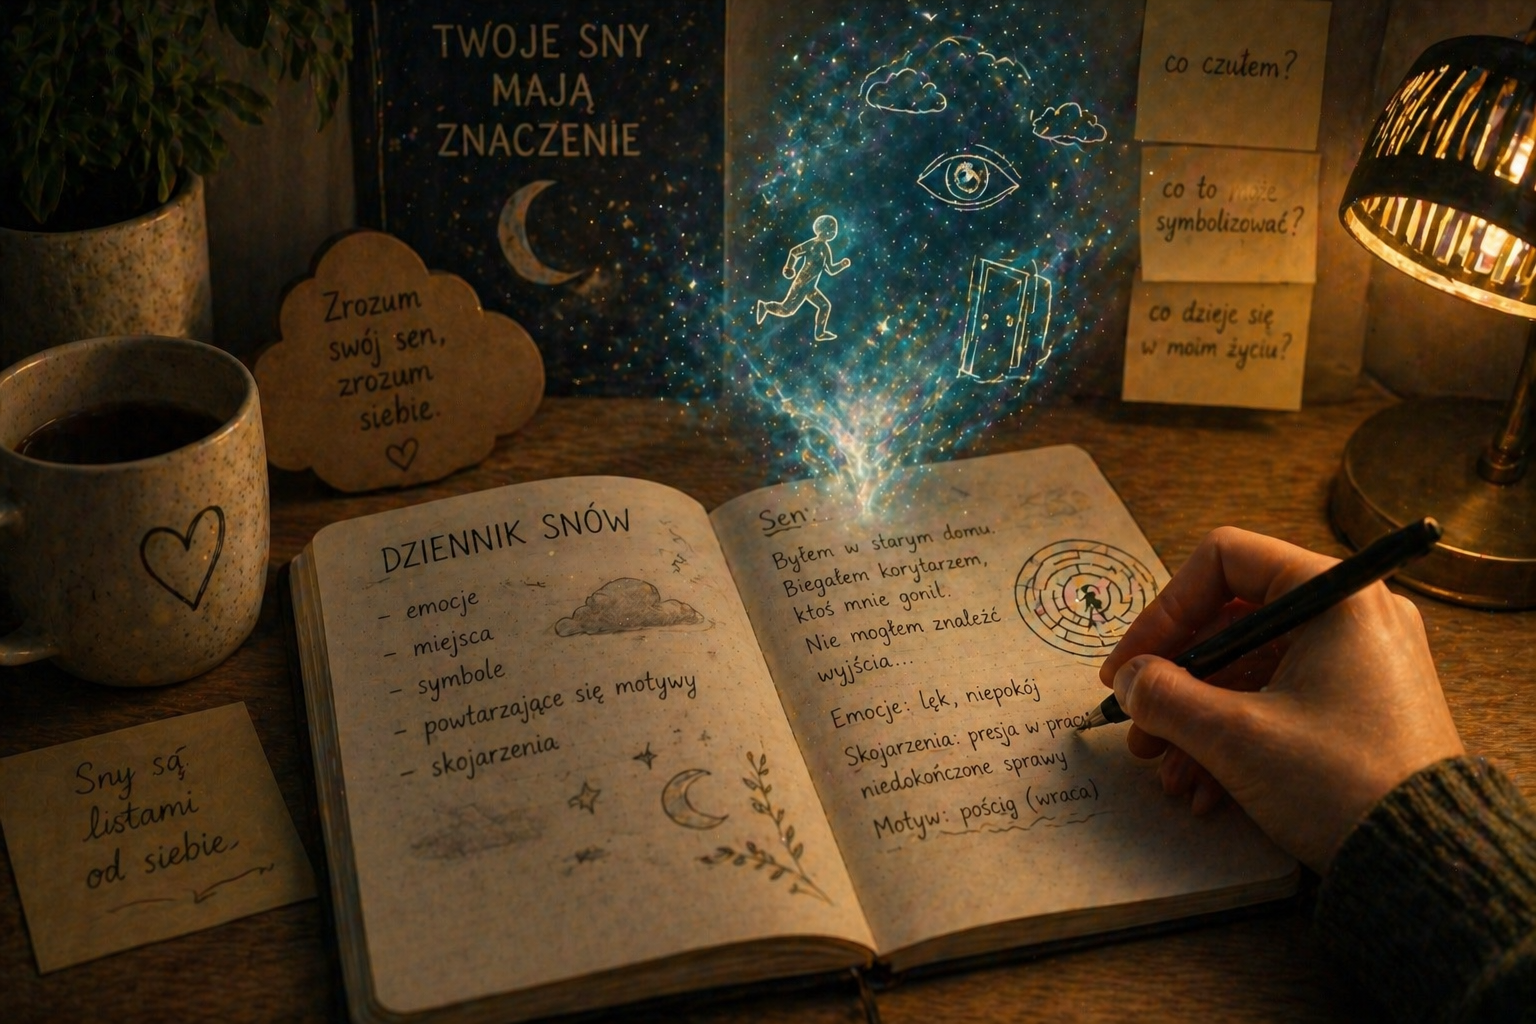 TWOJE SNY
MAJĄ
ZNACZENIE
co czułem?
co to może
symbolizować?
co dzieje się
w moim życiu?
Zrozum
swój sen,
zrozum
siebie.
DZIENNIK SNÓW
- emocje
- miejsca
- symbole
- powtarzające się motywy
- skojarzenia
Sen:
Byłem w starym domu.
Biegałem korytarzem,
ktoś mnie gonil.
Nie mogłem znaleźć
wyjścia...
Emocje: lęk, niepokój
Skojarzenia: presja w pracy
niedokończone sprawy
Motyw: pościg (wraca)
Sny są
listami
od siebie.